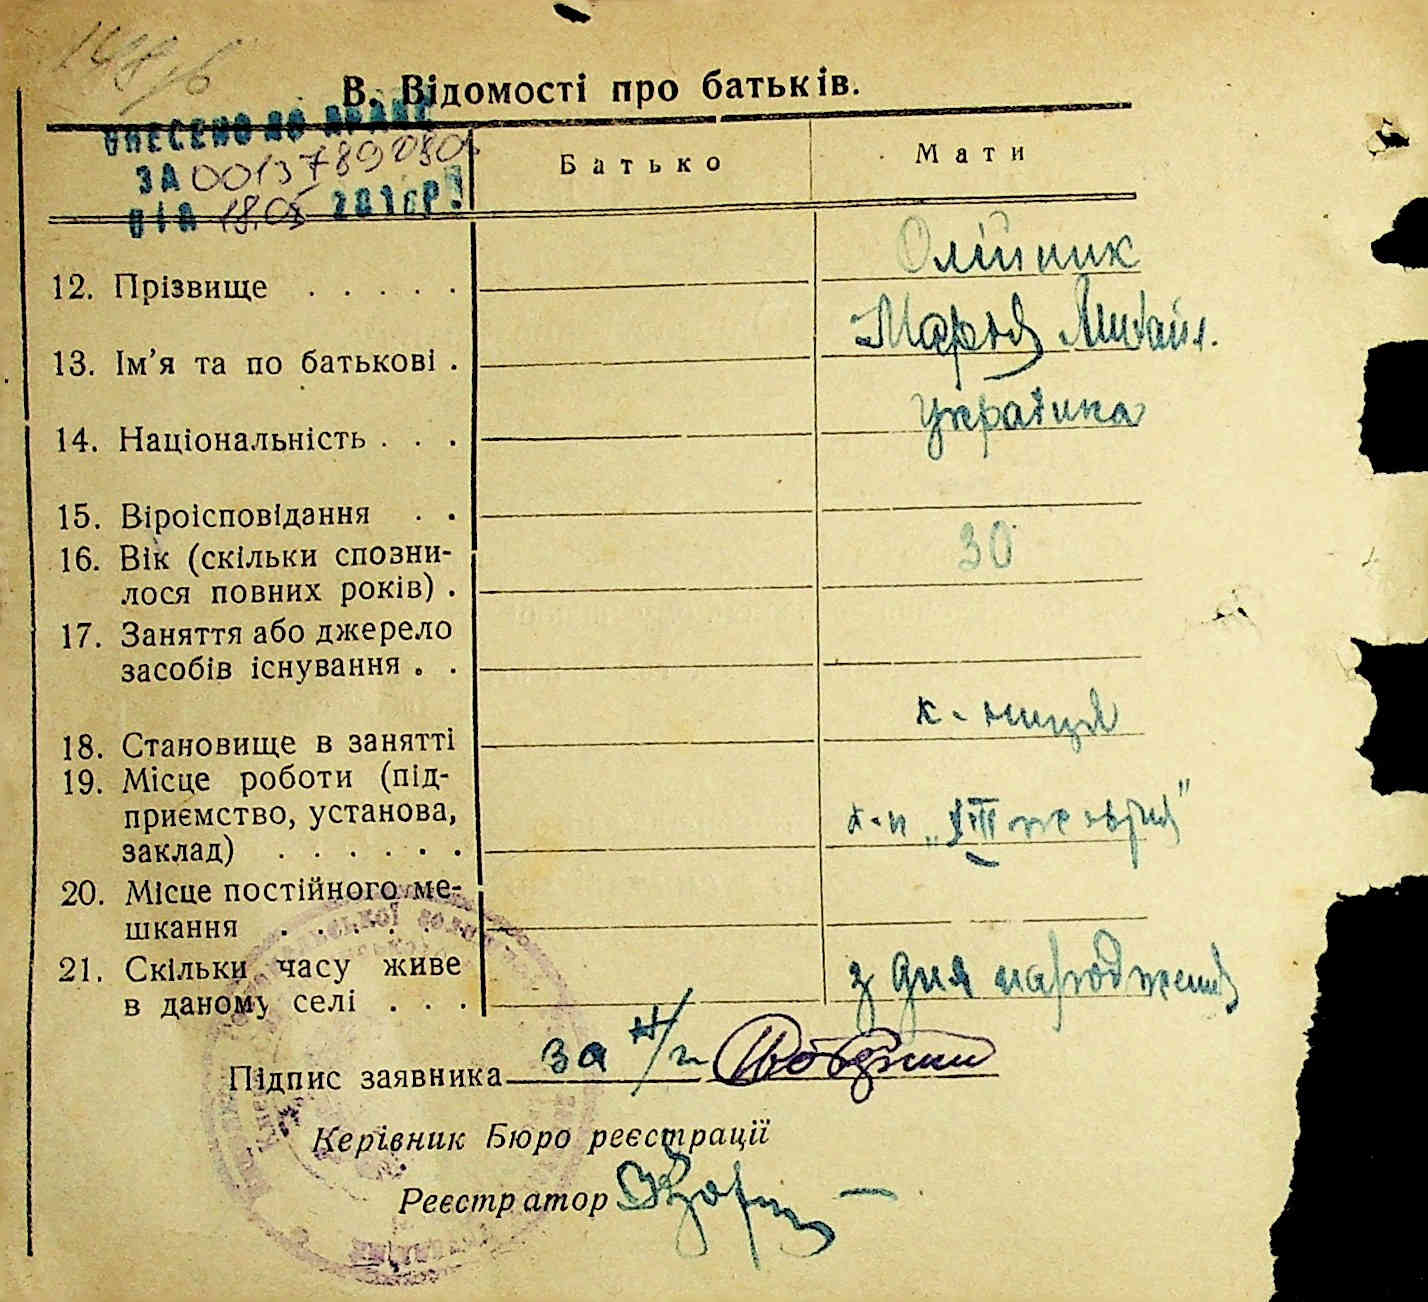 В. Відомості про батьків.
ВНЕСЕНО ДО
ЗА 00137890801
ВІД 18.05 2016Р.
Батько Мати
12. Прізвище . . . . . Олійник
13. Ім'я та по батькові . Марія Михайл.
14. Національність . . . Українка
15. Віроісповідання . .
16. Вік (скільки спозни-
лося повних років) . 30
17. Заняття або джерело
засобів існування . .
18. Становище в занятті к-ниця
19. Місце роботи (під-
приємство, установа,
заклад) . . . . . .
20. Місце постійного ме-
шкання . . . . . .
21. Скільки часу живе
в даному селі . . . з дня народження
Підпис заявника за н/г
Керівник Бюро реєстрації
Реєстратор